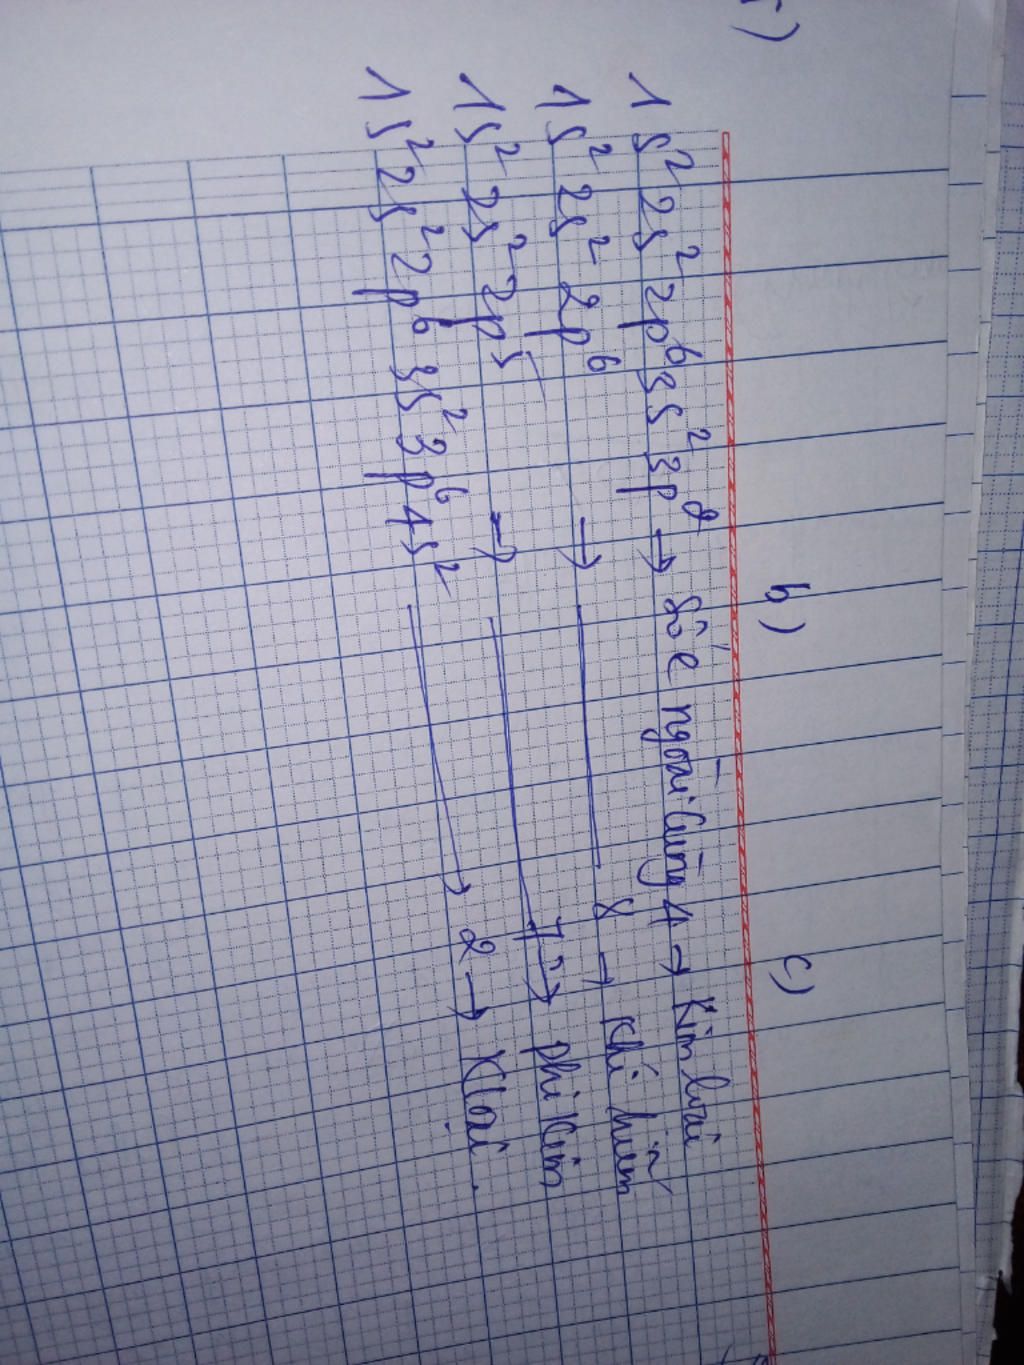 b) c)
1s² 2s² 2p⁶ 3s² 3p² → Số e ngoài cùng 4 → Kim loại
1s² 2s² 2p⁶ → 8 → Khí hiếm
1s² 2s² 2p⁵ → 7 → phi kim
1s² 2s² 2p⁶ 3s² 3p⁶ 4s² → 2 → Kloại.